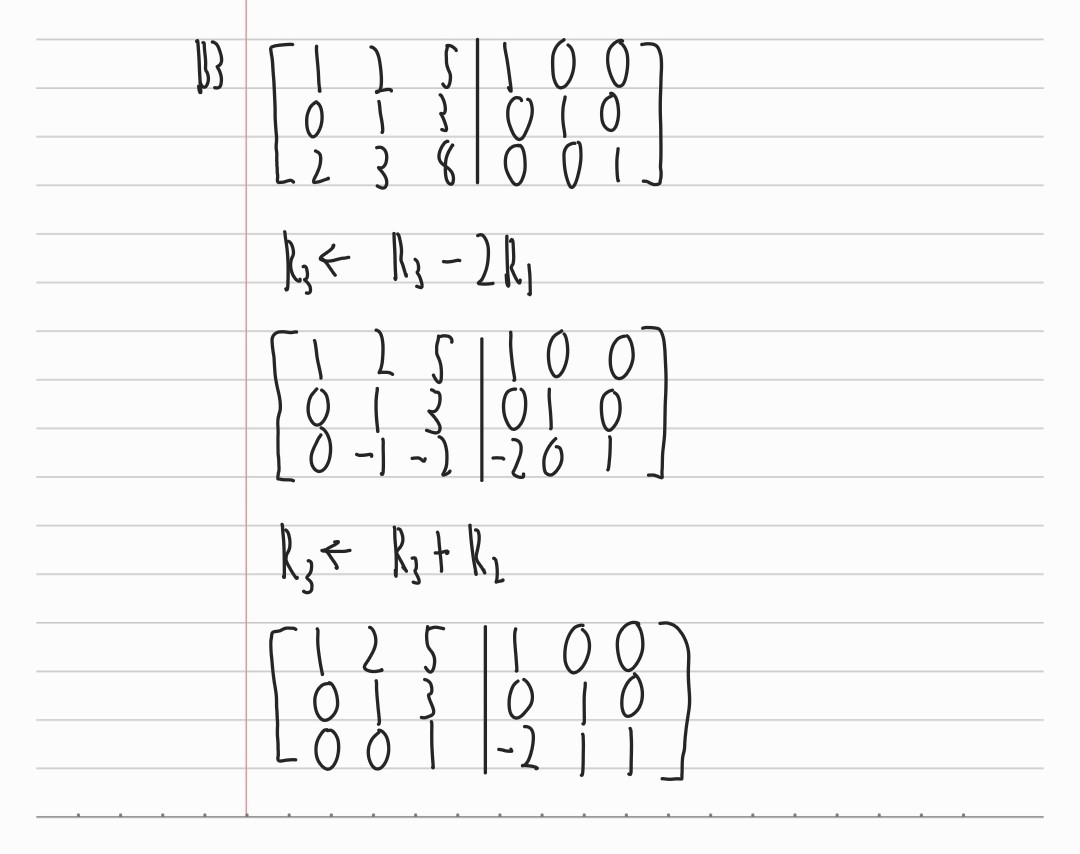 B [ 1 2 5 | 1 0 0 ]
[ 0 1 3 | 0 1 0 ]
[ 2 3 8 | 0 0 1 ]
R₃ ← R₃ - 2R₁
[ 1 2 5 | 1 0 0 ]
[ 0 1 3 | 0 1 0 ]
[ 0 -1 -2 | -2 0 1 ]
R₃ ← R₃ + R₂
[ 1 2 5 | 1 0 0 ]
[ 0 1 3 | 0 1 0 ]
[ 0 0 1 | -2 1 1 ]